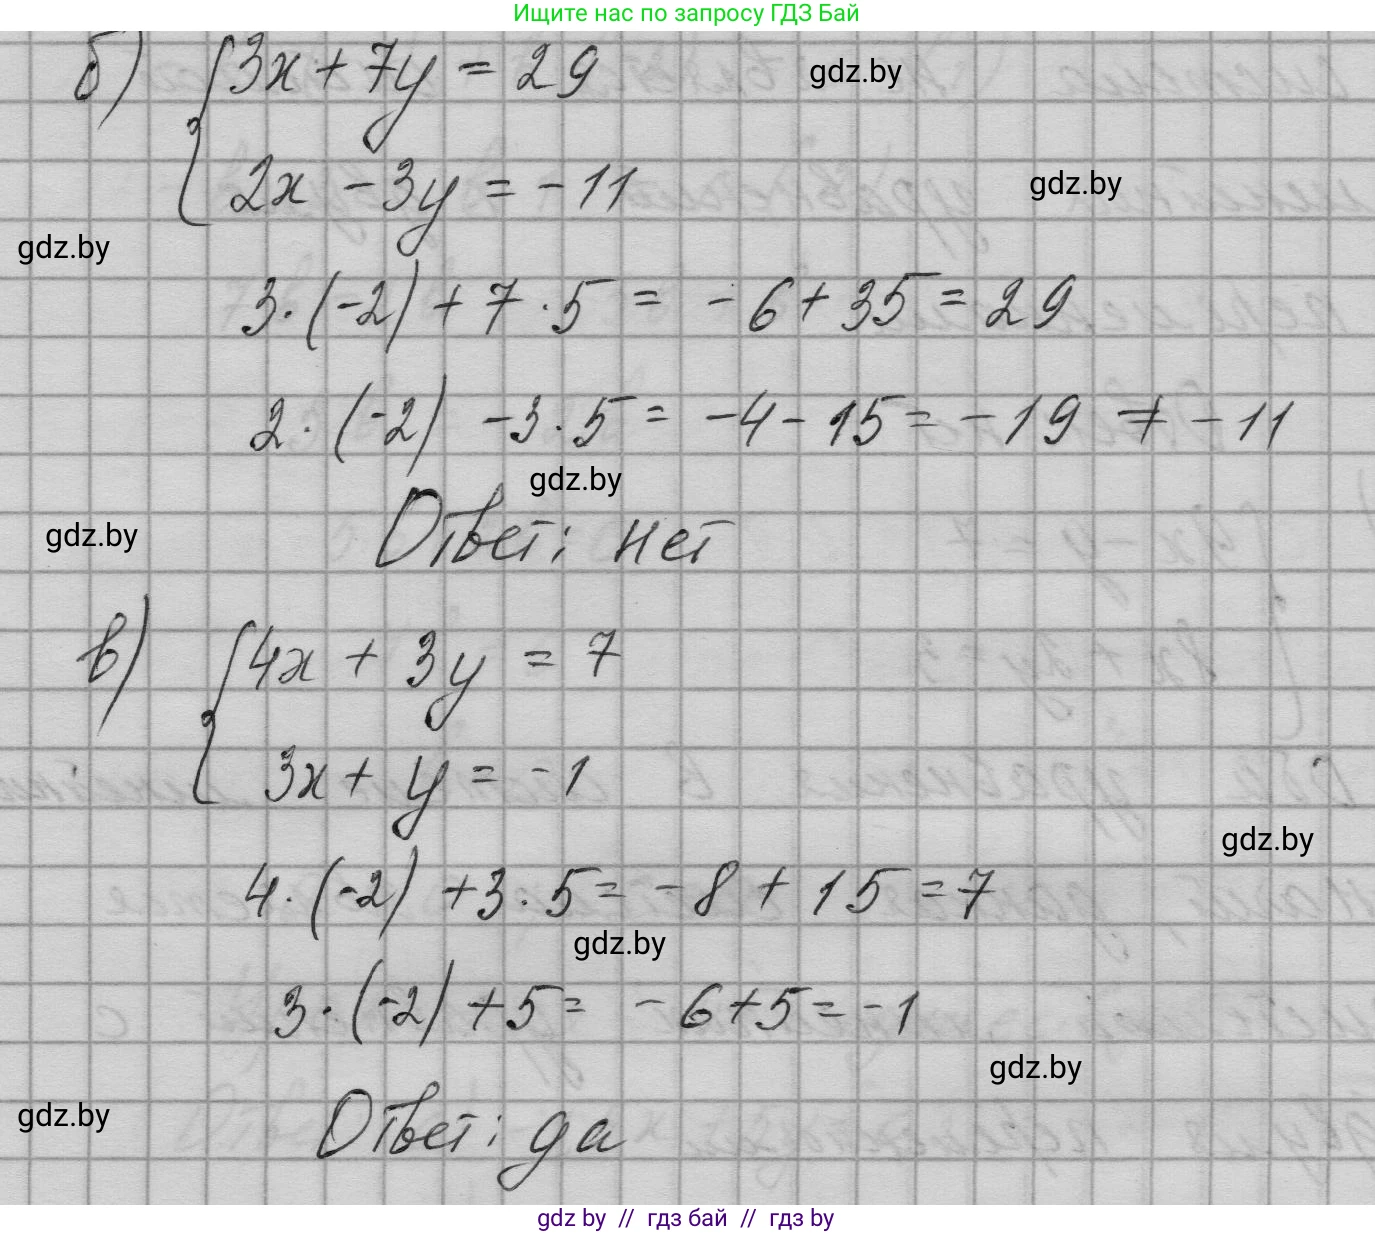 Ищите нас по запросу ГДЗ Бай
б) { 3x + 7y = 29
gdz.by
2x - 3y = -11
gdz.by
gdz.by
3·(-2) + 7·5 = -6 + 35 = 29
2·(-2) - 3·5 = -4 - 15 = -19 ≠ -11
gdz.by
gdz.by
Ответ: нет
в) { 4x + 3y = 7
3x + y = -1
gdz.by
4·(-2) + 3·5 = -8 + 15 = 7
gdz.by
3·(-2) + 5 = -6 + 5 = -1
gdz.by
gdz.by
Ответ: да
gdz by // гдз бай // гдз by